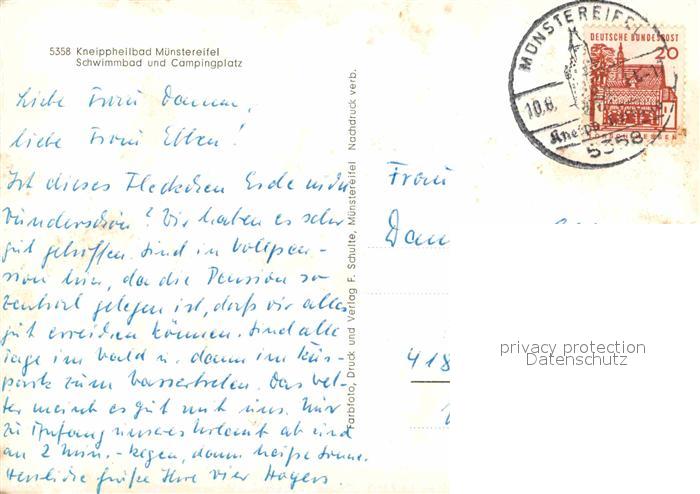 5358 Kneippheilbad Münstereifel
Schwimmbad und Campingplatz
Liebe Frau Damm,
liebe Frau Ebben!
Ist dieses Fleckchen Erde nicht
wunderschön? Wir haben es sehr
gut getroffen. Sind in Vollpen-
sion hier, da die Pension so
zentral gelegen ist, daß wir alles
gut erreichen können. Sind alle
Tage im Wald u. dann im Kur-
park zum Wassertreten. Das Wet-
ter meint es gut mit uns. Nur
zu Anfang unseres Urlaubs ab und
an 2 Min.-Regen, dann heiße Sonne.
Herzliche Grüße Ihre vier Hagers.
Farbfoto, Druck und Verlag F. Schulte, Münstereifel Nachdruck verb.
Frau
Dam
418
MÜNSTEREIFEL
10.8.
Kneipp
5358
DEUTSCHE BUNDESPOST
20
privacy protection
Datenschutz